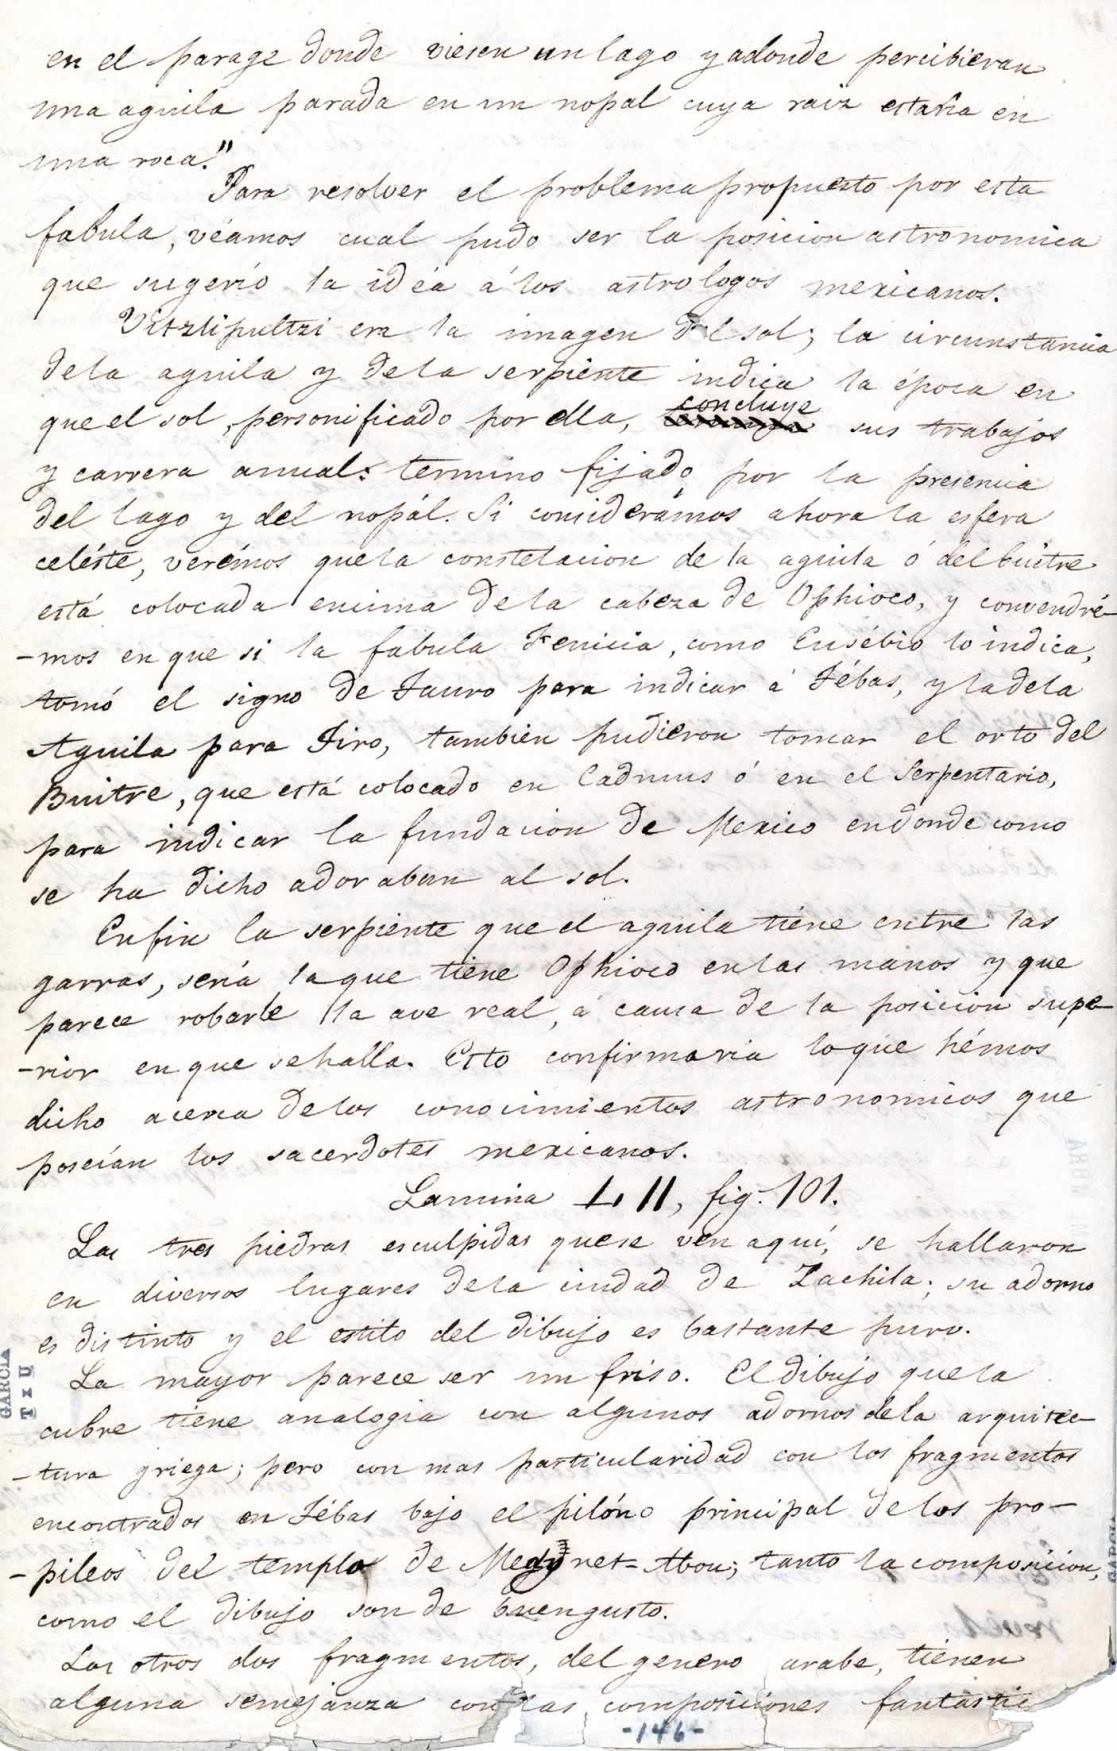 en el parage donde viesen un lago y adonde percibieran
una aguila parada en un nopal cuya raiz estaria en
una roca."
Para resolver el problema propuesto por esta
fabula, véamos cual pudo ser la posicion astronomica
que sugerió la idéa á los astrologos mexicanos.
Vitzlipultzi era la imagen del sol; la circunstancia
de la aguila y de la serpiente indica la época en
que el sol, personificado por ella, concluye sus trabajos
y carrera anual: termino fijado por la presencia
del lago y del nopál. Si considerámos ahora la esfera
celéste, verémos que la constelacion de la aguila ó del buitre
está colocada encima de la cabeza de Ophioco, y convendré-
-mos en que si la fabula Fenicia, como Eusébio lo indica,
tomó el signo de Tauro para indicar á Tébas, y la de la
Aguila para Tiro, tambien pudieron tomar el orto del
Buitre, que está colocado en Cadmus ó en el Serpentario,
para indicar la fundacion de Mexico en donde como
se ha dicho adoraban al sol.
En fin la serpiente que el aguila tiene entre las
garras, sería la que tiene Ophioco en las manos y que
parece robarle la ave real, á causa de la posicion supe-
-rior en que se halla. Esto confirmaria lo que hémos
dicho acerca de los conocimientos astronomicos que
poseían los sacerdotes mexicanos.
Lamina LII, fig. 101.
Las tres piedras esculpidas que se ven aquí, se hallaron
en diversos lugares de la ciudad de Zachila; su adorno
es distinto y el estilo del dibujo es bastante puro.
La mayor parece ser un friso. El dibujo que la
cubre tiene analogia con algunos adornos de la arquitec-
-tura griega; pero con mas particularidad con los fragmentos
encontrados en Tébas bajo el pilóno principal de los pro-
-pileos del templo de Medynet-Abou; tanto la composicion,
como el dibujo son de buen gusto.
Los otros dos fragmentos, del genero arabe, tienen
alguna semejanza con las composiciones fantastic
-146-
GARCIA